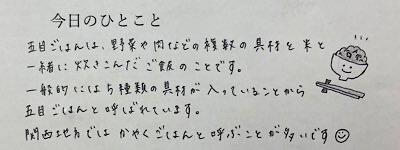 今日のひとこと
五目ごはんは、野菜や肉などの複数の具材を米と
一緒に炊きこんだご飯のことです。
一般的には5種類の具材が入っていることから
五目ごはんと呼ばれています。
関西地方ではかやくごはんと呼ぶことが多いです